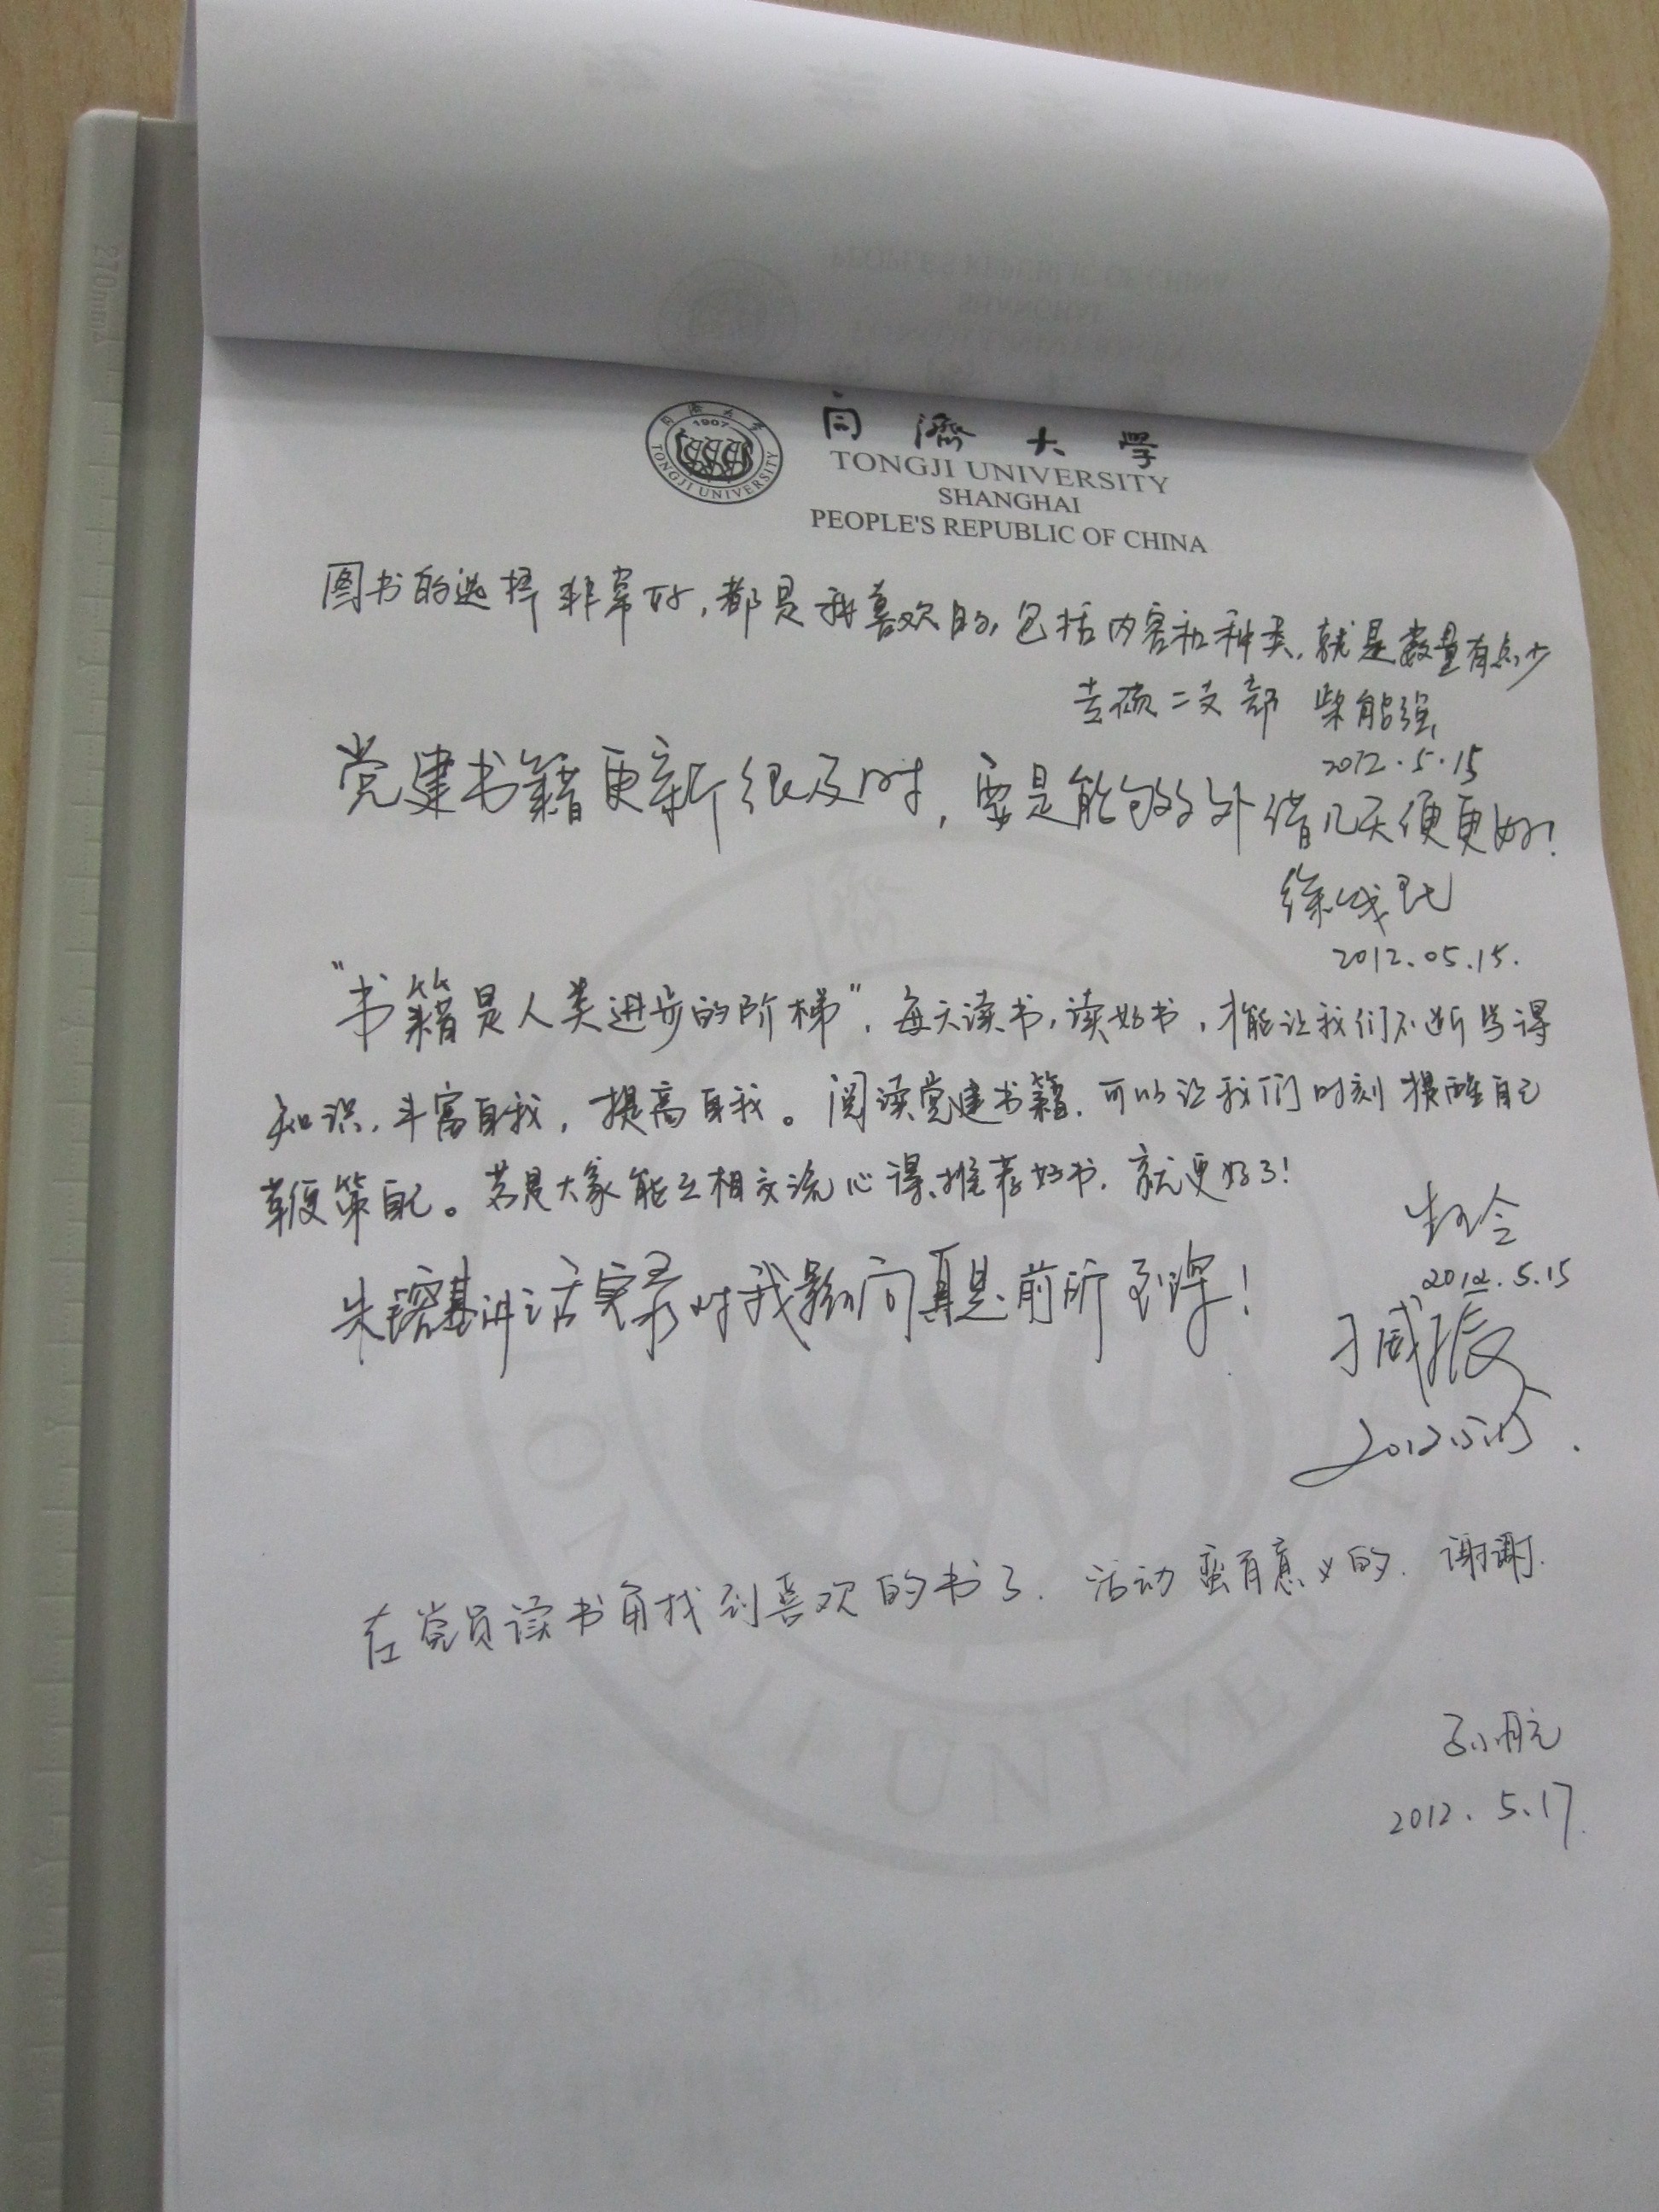 同濟大學
1907
TONGJI UNIVERSITY
TONGJI UNIVERSITY
SHANGHAI
PEOPLE'S REPUBLIC OF CHINA
图书的选择非常好,都是我喜欢的,包括内容和种类,就是数量有点少
专硕二支部 柴能强
2012.5.15
党建书籍更新很及时,要是能够外借几天便更好!
徐
2012.05.15.
"书籍是人类进步的阶梯",每天读书,读好书,才能让我们不断学得
知识,丰富自我,提高自我。阅读党建书籍,可以让我们时刻提醒自己
鞭策自己。若是大家能互相交流心得,推荐好书,就更好了!
2012.5.15
朱镕基讲话实录对我影向真是前所
2012.5.15.
在党员读书角找到喜欢的书了.活动蛮有意义的.谢谢.
孙小航
2012.5.17.
TONGJI UNIVER
270mm